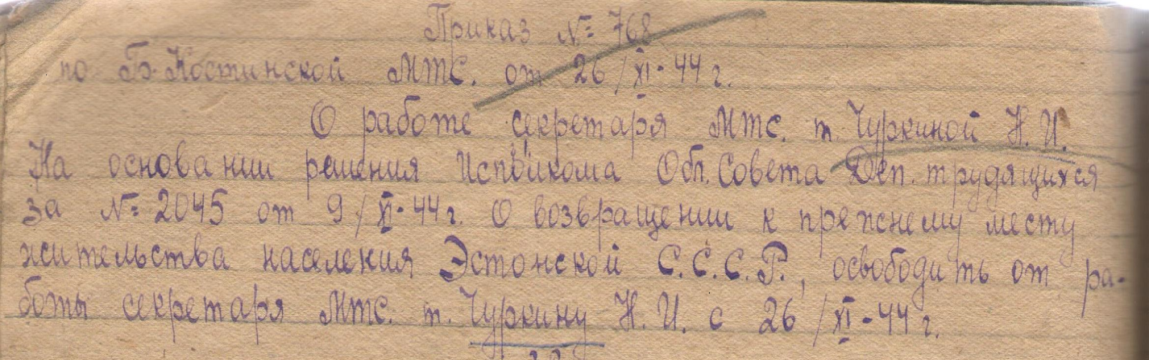 Приказ №= 768
по Б-Костинской МТС. от 26/XI-44 г.
О работе секретаря Мтс. т. Чуркиной Н. И.
На основании решения Исполкома Обл. Совета Деп. трудящихся
за №= 2045 от 9/XI-44 г. О возвращении к прежнему месту
жительства населения Эстонской С.С.С.Р., освободить от ра-
боты секретаря Мтс. т. Чуркину Н. И. с 26/XI-44 г.